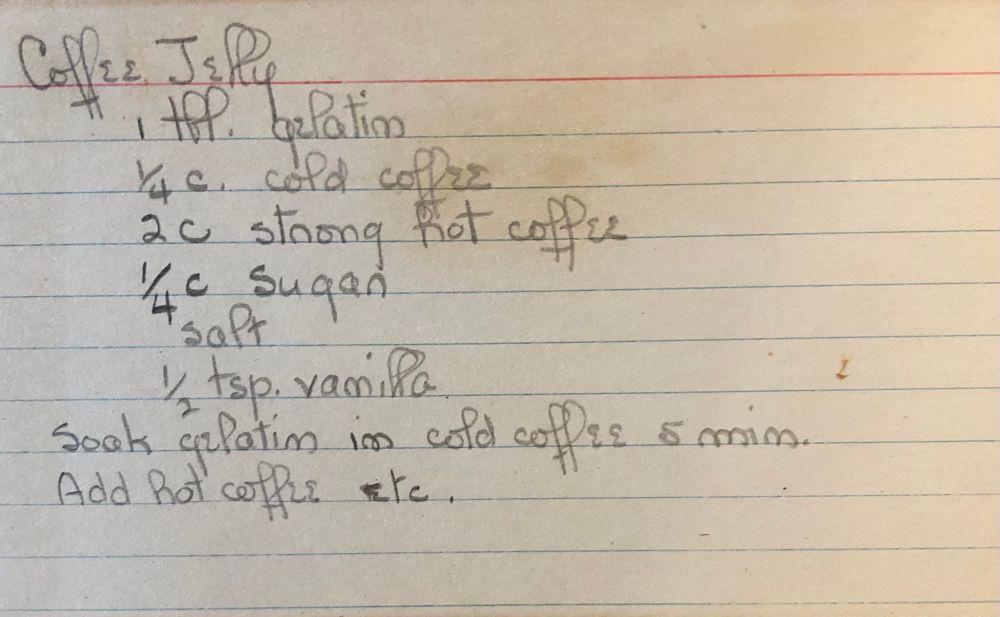 Coffee Jelly
1 tbp. gelatin
1/4 c. cold coffee
2 c strong hot coffee
1/4 c sugar
salt
1/2 tsp. vanilla
Soak gelatin in cold coffee 5 min.
Add hot coffee etc.